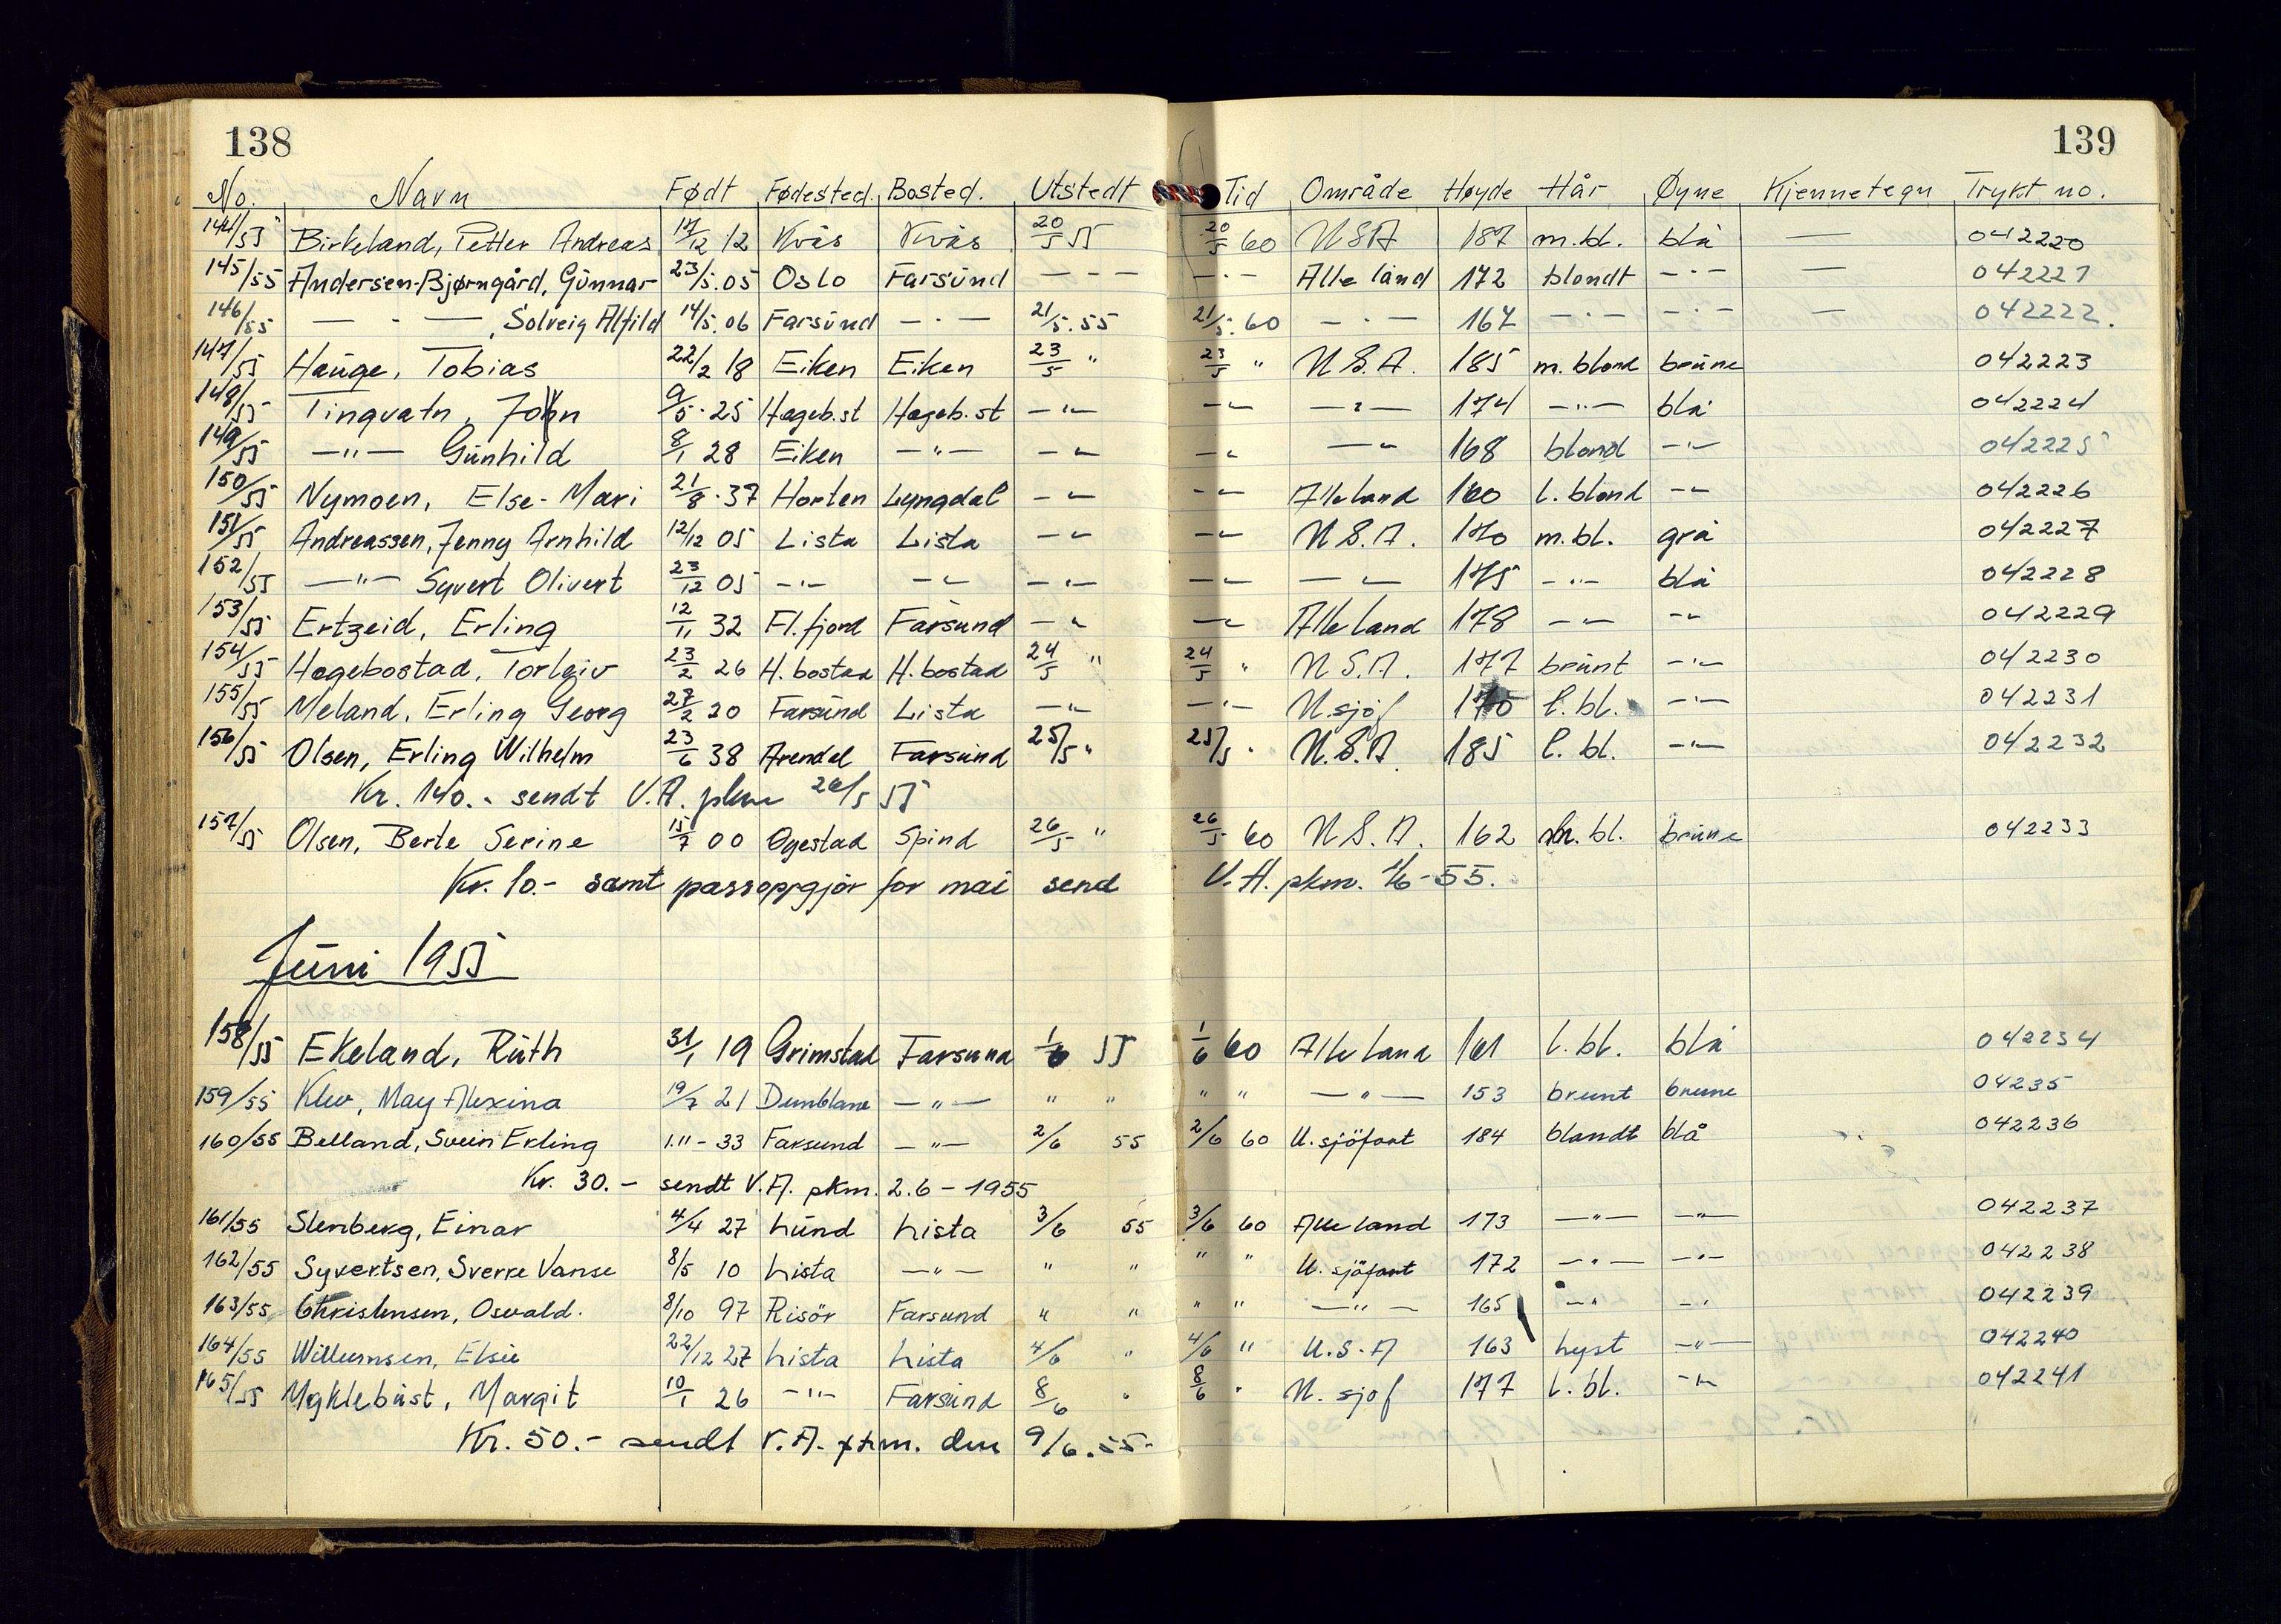 138 139
No. Navn Født Fødested. Bosted. Utstedt Tid Område Høyde Hår Øyne Kjennetegn Trykt no.
144/55 Birkeland, Petter Andreas 17/12 12 Kvås Kvås 20/5 55 20/5 60 USA 187 m.bl. blå — 042220
145/55 Andersen-Bjørngård, Gunnar 23/5.05 Oslo Farsund — - — — · — Alle land 172 blondt — · — — 042221
146/55 — - — , Solveig Alfild 14/5.06 Farsund — · — 21/5.55 21/5.60 — · — 167 — · — — · — — 042222.
147/55 Hauge, Tobias 22/2 18 Eiken Eiken 23/5 " 23/5 " U.S.A. 185 m. blond brune 042223
148/55 Tingvatn, John 9/5.25 Hageb.st Hageb.st —"— —"— —"— 174 —"— blå 042224
149/55 —"— Gunhild 8/1 28 Eiken —"— —"— —"— —"— 168 blond —"— 042225
150/55 Nymoen, Else-Mari 21/8.37 Horten Lyngdal —"— —"— Alle land 160 l. blond —"— 042226
151/55 Andreassen, Jenny Arnhild 12/12 05 Lista Lista —"— —"— U.S.A. 170 m.bl. grå 042227
152/55 —"— Syvert Olivert 23/12 05 —"— —"— —"— —"— —"— 175 —"— blå 042228
153/55 Ertzeid, Erling 12/11 32 Fl.fjord Farsund —"— —"— Alle land 178 —"— —"— 042229
154/55 Hegebostad, Torleiv 23/2 26 H.bostad H.bostad 24/5 " 24/5 " U.S.A. 177 brunt —"— 042230
155/55 Meland, Erling Georg 27/2 20 Farsund Lista —"— —"— U.sjøf 170 l.bl. —"— 042231
156/55 Olsen, Erling Wilhelm 23/6 38 Arendal Farsund 25/5 " 25/5 " U.S.A 185 l. bl. —"— 042232
Kr. 140.- sendt V.A. pkm 26/5 55
157/55 Olsen, Berte Serine 15/7 00 Øgestad Spind 26/5 " 26/5 60 U.S.A. 162 m. bl. brune 042233
Kr. 10.- samt passoppgjør for mai send V.A. pkm. 1/6-55.
Juni 1955
158/55 Ekeland, Ruth 31/1 19 Grimstad Farsund 1/6 55 1/6 60 Alle land 161 l. bl. blå 042234
159/55 Klev, May Alexina 19/7 21 Dunblane —"— " " " " —"— 153 brunt brune 04235
160/55 Belland, Svein Erling 1.11-33 Farsund —"— 2/6 55 2/6 60 U.sjöfart 184 blandt blå 042236
Kr. 30.- sendt V.A. pkm. 2.6-1955
161/55 Stenberg, Einar 4/4 27 Lund Lista 3/6 55 3/6 60 Alle land 173 —"— —"— 042237
162/55 Syvertsen, Sverre Vanse 8/5 10 Lista —"— " " " " U. sjöfart 172 —"— —"— 042238
163/55 Christensen, Osvald. 8/10 97 Risör Farsund " " " " —"— 165 —"— —"— 042239
164/55 Willumsen, Elsie 22/12 27 Lista Lista 4/6 " 4/6 " U.S.A 163 lyst —"— 042240
165/55 Myklebust, Margit 10/1 26 —"— Farsund 8/6 " 8/6 " U. sjøf 177 l. bl. —"— 042241
Kr. 50.- sendt V.A. pkm. den 9/6.55-